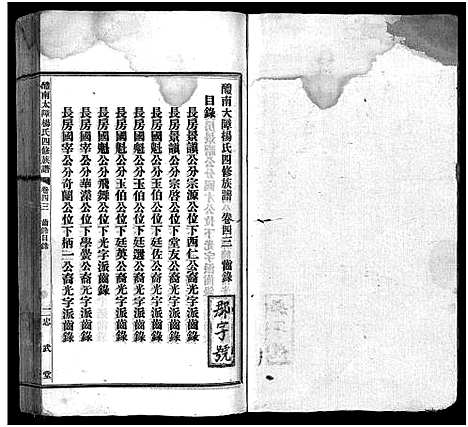 醴南大障楊氏四修族譜 卷四三 齒錄
目錄
長房景韻公分宗源公位下西仁公裔光字派齒錄
長房景韻公分宗啓公位下堂友公裔光字派齒錄
長房國魁公分玉伯公位下廷佐公裔光字派齒錄
長房國魁公分玉伯公位下廷選公裔光字派齒錄
長房國魁公分玉伯公位下廷英公裔光字派齒錄
長房國魁公分飛舞公位下光字派齒錄
長房國宰公分華藻公位下學黌公裔光字派齒錄
長房國宰公分奇蘭公位下柄一公裔光字派齒錄
郡字號
醴南大障楊氏四修族譜 卷四三 齒錄目錄
一 忠武堂